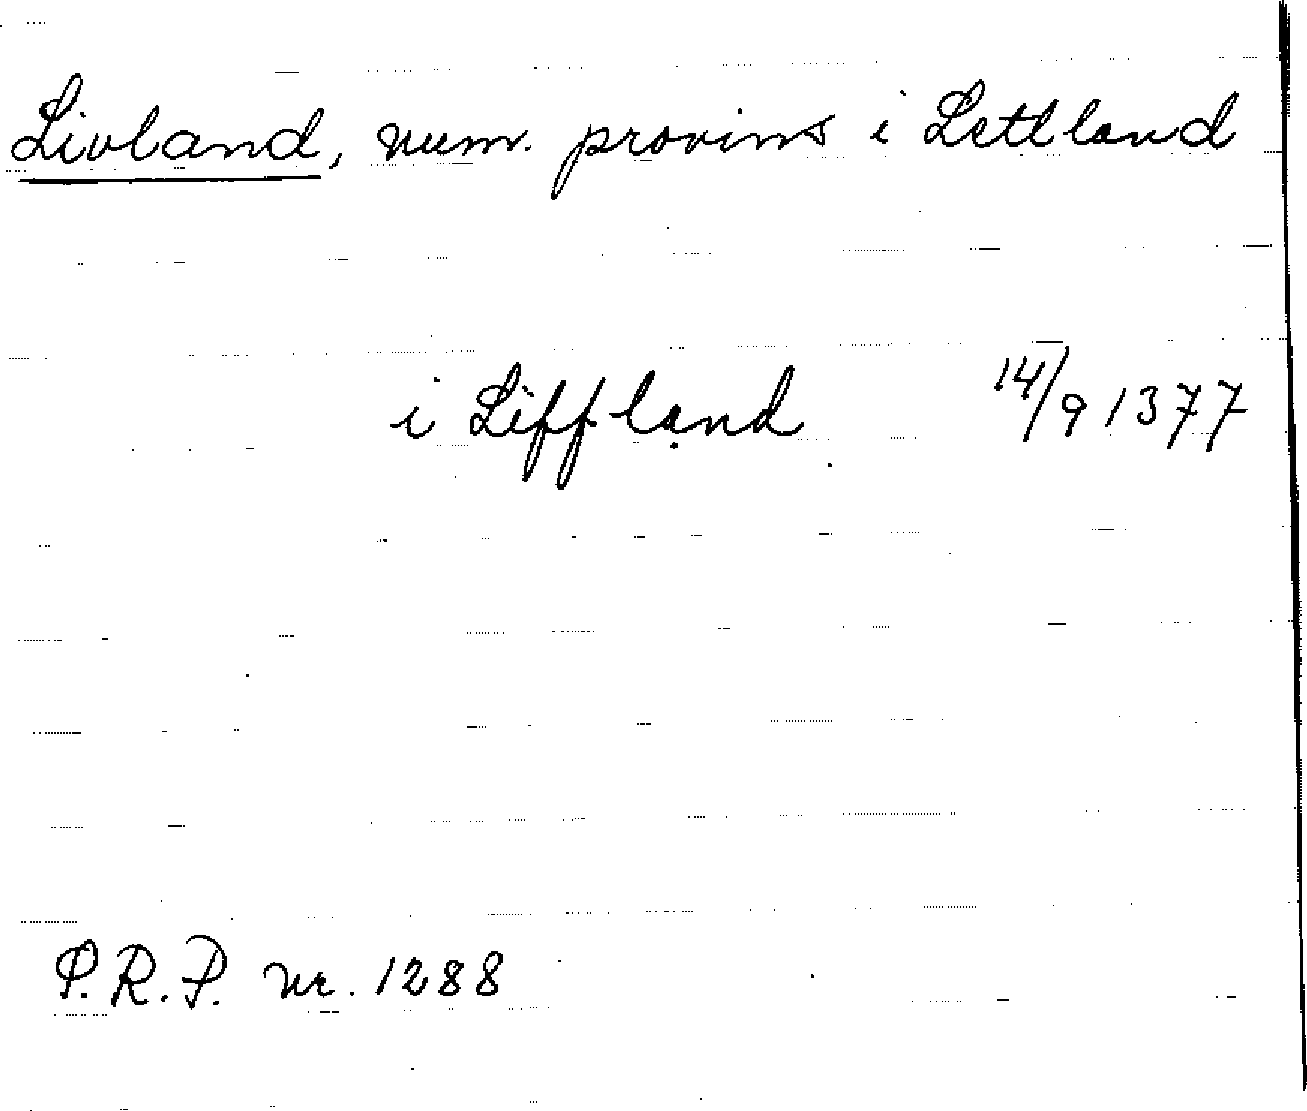 Livland, num. provins i Lettland
i Liffland 14/9 1377
P.R.P. nr. 1288